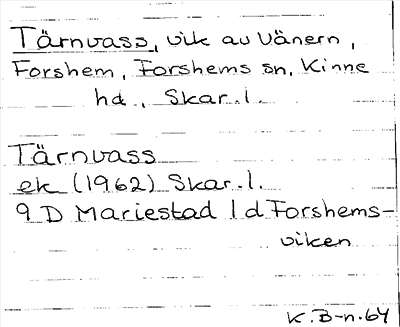 Tärnvass, vik av Vänern,
Forshem, Forshems sn, Kinne
hd., Skar.l.
Tärnvass
ek (1962) Skar.l.
9 D Mariestad 1 d Forshems-
viken
K.B-n.64